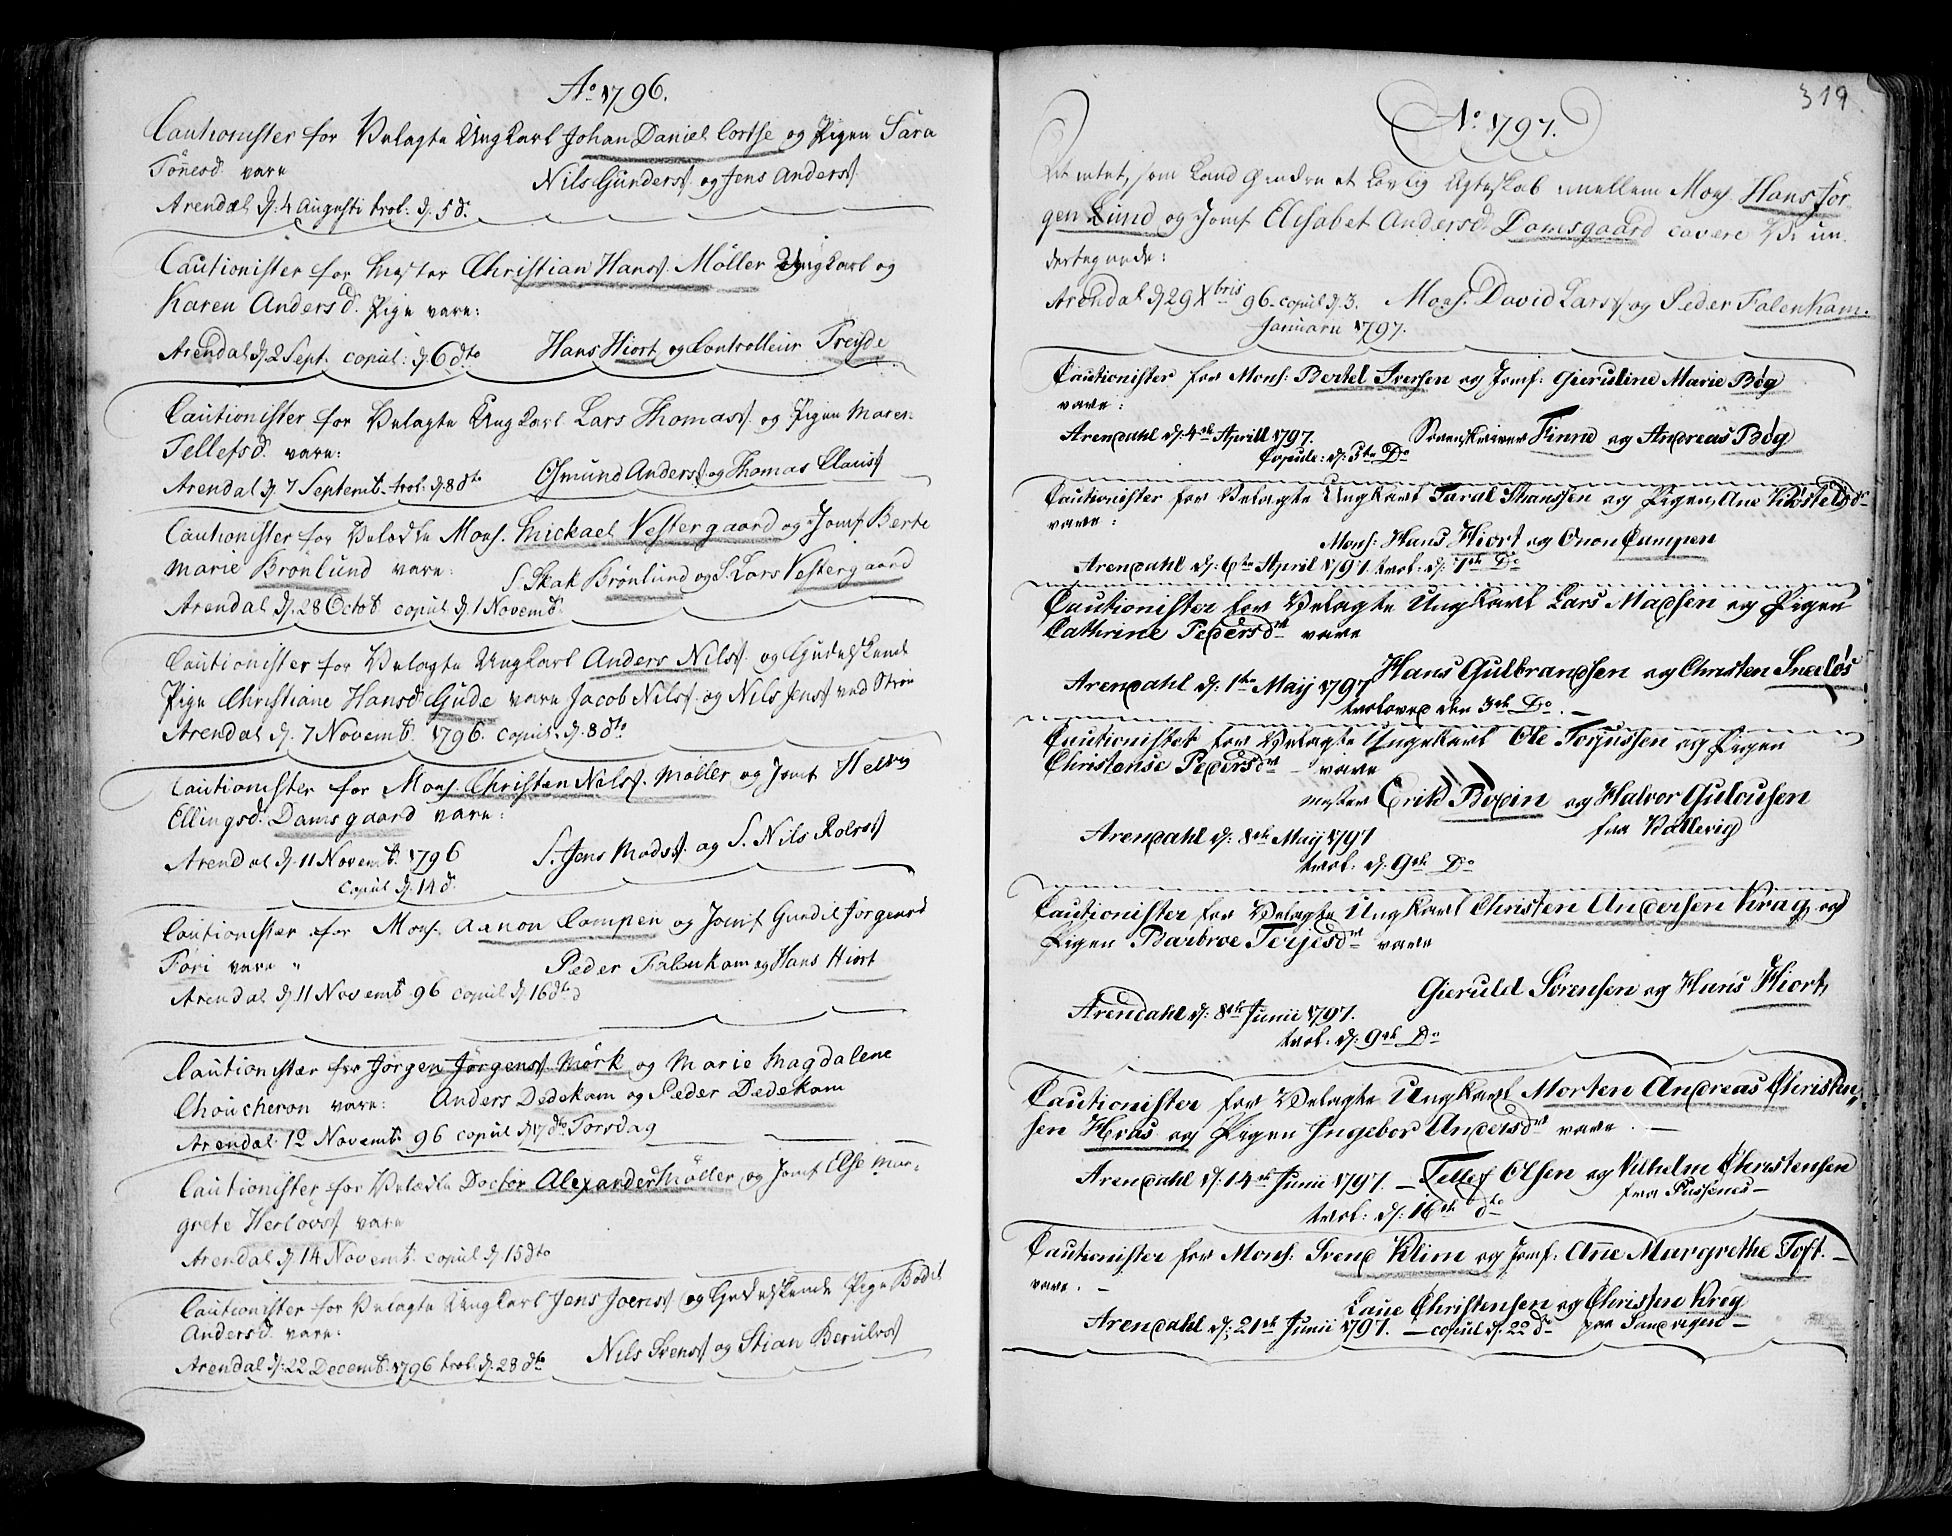 Aº 1796.
Cautionister for Velagte Ungkarl Johan Daniel Cortse og Pigen Sara
Tönnesd. vare
Nils Gunders. og Jens Anders.
Arendal d. 4 Augusti trol: d. 5 d.
Cautionister for Mester Christian Hans. Möller Ungkarl og
Karen Andersd. Pige vare:
Arendal d. 2 Sept. copul: d. 6 dto Hans Hiort og Controlleur Treyde
Cautionister for Velagte Ungkarl Lars Thomas. og Pigen Maren
Tellefsd. vare:
Arendal d. 7 Septemb. trol. d. 8 dto Osmund Anders. og Thomas Claus.
Cautionister for Velædle Mons. Mickael Vestergaard og Jomf Berte
Marie Brönlund vare: S. Skak Brönlund og S. Lars Vestergaard
Arendal d. 28 Octob. copul d. 1 Novemb.
Cautionister for Velagte Ungkarl Anders Nils. og Gudelskende
Pige Christiane Hansd. Gude vare Jacob Nils. og Nils Jens. ved Ströe
Arendal d. 7 Novemb. 1796. copul. d. 8 dto
Cautionister for Mons. Christen Nils. Möller og Jomf Helvig
Ellingsd. Damsgaard vare:
Arendal d. 11 Novemb. 1796 S. Jens Mads. og S. Nils Rolvs.
copul d. 14 d.
Cautionister for Mons. Aanon Campen og Jomf Gundil Jörgensd
Fori vare
Peder Falenkam og Hans Hiort
Arendal d. 11 Novemb. 96 copul d. 16 dto
Cautionister for Jörgen Jörgens. Mörk og Marie Magdalene
Choucheron vare: Anders Dedekam og Peder Dedekam
Arendal 12 Novemb. 96 copul d. 17 dto Torsdag
Cautionister for Velædle Doctor Alexander Möller og Jomf Else Mar-
grete Herlovs. vare
Arendal d. 14 Novemb. copul d. 15 dto
Cautionister for Velagte Ungkarl Jens Joens. og Gudelskende Pige Bodil
Andersd. vare:
Arendal d. 22 Decemb. 1796 trol. d. 28 dto Nils Svens. og Stian Berulvs.
319
Aº 1797.
som kand hindre et Lovlig Egteskab imellem Mons. Hans Jör-
gen Lund og Jomf Elisabet Andersd. Damsgaard cavere Vi un-
dertegnede:
Arendal d. 29 Xbris 96. copul d. 3. Mons. David Lars. og Peder Falenkam.
Januarii 1797.
Cautionister for Mons: Bertel Iversen og Jomf: Gieruline Marie Bøg
vare:
Arendahl d. 4de Aprill 1797. Sorenskriver Finne og Andreas Bøg
Copule: d. 5te Do
Cautionister for Velagte Ungkarl Taral Hanssen og Pigen, Ane
vare:
Mons: Hans Hiort og Onon Campen
Arendahl d: 6te April 1797. trol: d: 7de Do
Cautionister for Velagte Ungkarl Lars Madsen og Pigen
Cathrine Pedersdtr vare
Hans Gulbrandsen og Christen Sneeløs
Arendahl d: 1te Maij 1797
troloved den 3de Do. —
Cautionister for Velagte Ungekarl Ole Torjussen og Pigen
Christense Pedersdtr — vare
Mester Erik og Halvor Gulousen
fra Kallevig
Arendahl d: 8de Maij 1797
trol: d: 9de Do
Cautionister for Velagte Ungkarl Christen Andersen Krag, og
Pigen Barbroe Terjesdtr vare
Gieruld Sørensen og Hans Hiort,
Arendahl d: 8de Junii 1797.
trol: d: 9de Do
Cautionister for Velagte Ungkarl Morten Andreas Christen-
sen Hvas og Pigen Ingebor Andersdtr vare. —
Arendahl d: 14de Junii 1797. — Tellef Olsen og Vilhelm Christensen
fra Pussenes —
trol: d: 16de dto
Cautionister for Mons: Svend Klim og Jomf: Anne Margrethe Toft. —
vare. —
Laue Christensen og Christen Krøg
Arendahl d: 21de Junii 1797. — copul d: 22 do paa Sandvigen —